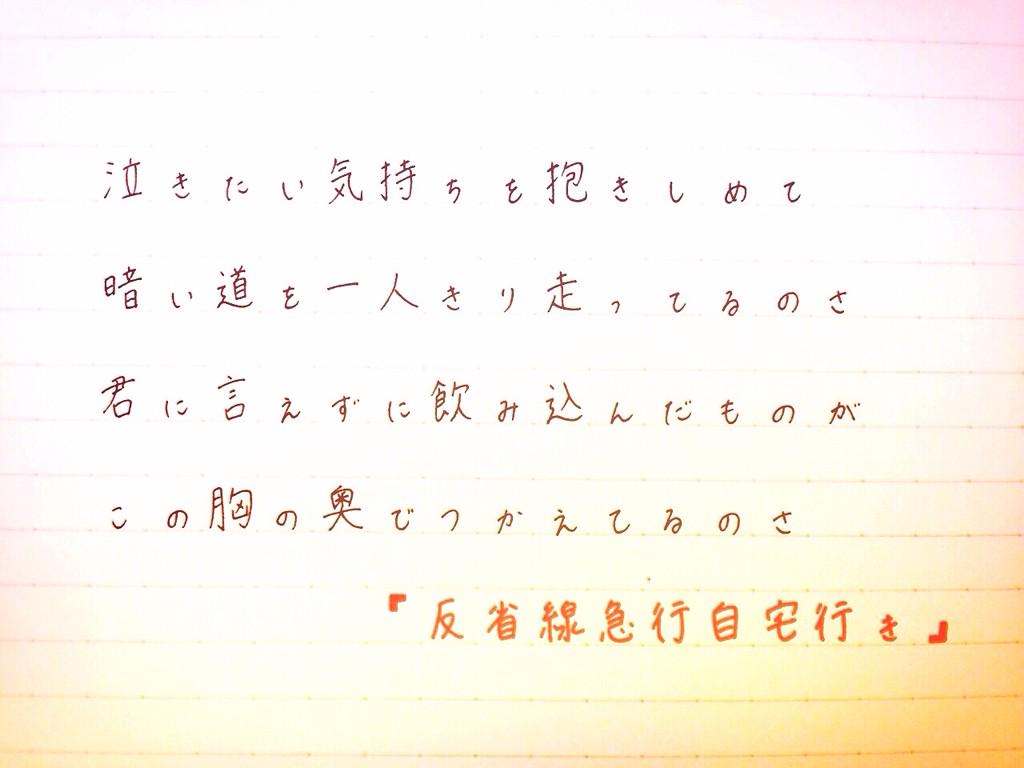 泣きたい気持ちを抱きしめて
暗い道を一人きり走ってるのさ
君に言えずに飲み込んだものが
この胸の奥でつかえてるのさ
『反省線急行自宅行き』